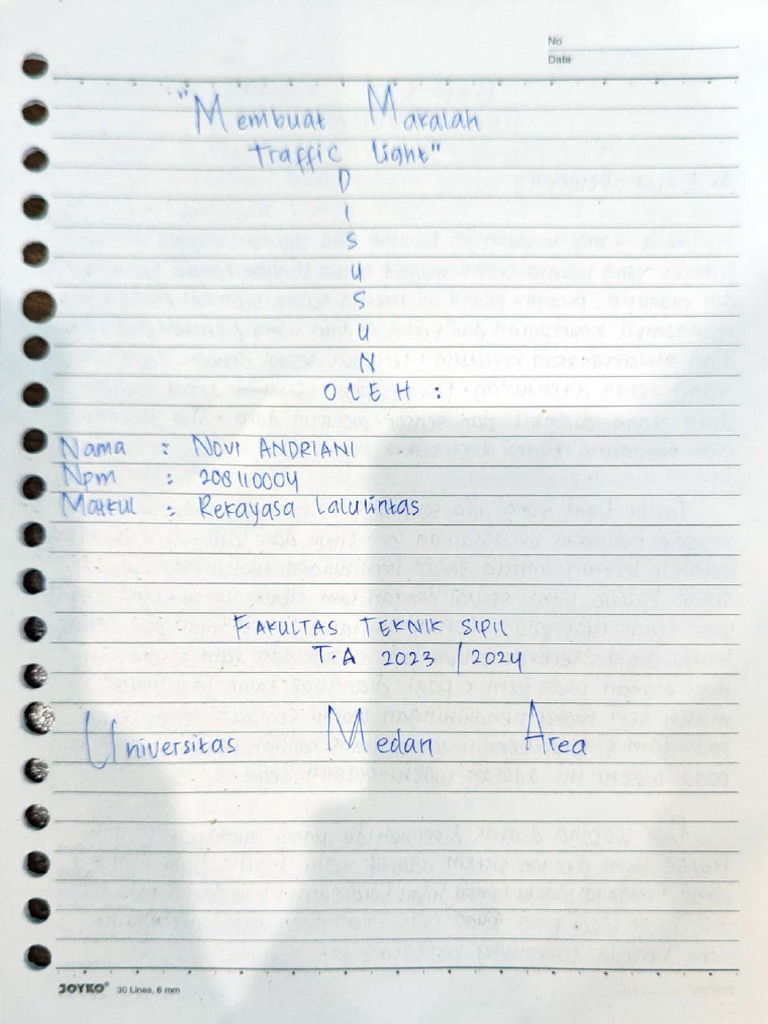 No
Date
"Membuat Makalah
Traffic Light"
D
I
S
U
S
U
N
OLEH :
Nama : NOVI ANDRIANI
Npm : 208110004
Matkul : Rekayasa Lalulintas
FAKULTAS TEKNIK SIPIL
T.A 2023 / 2024
Universitas Medan Area
JOYKO® 30 Lines, 6 mm